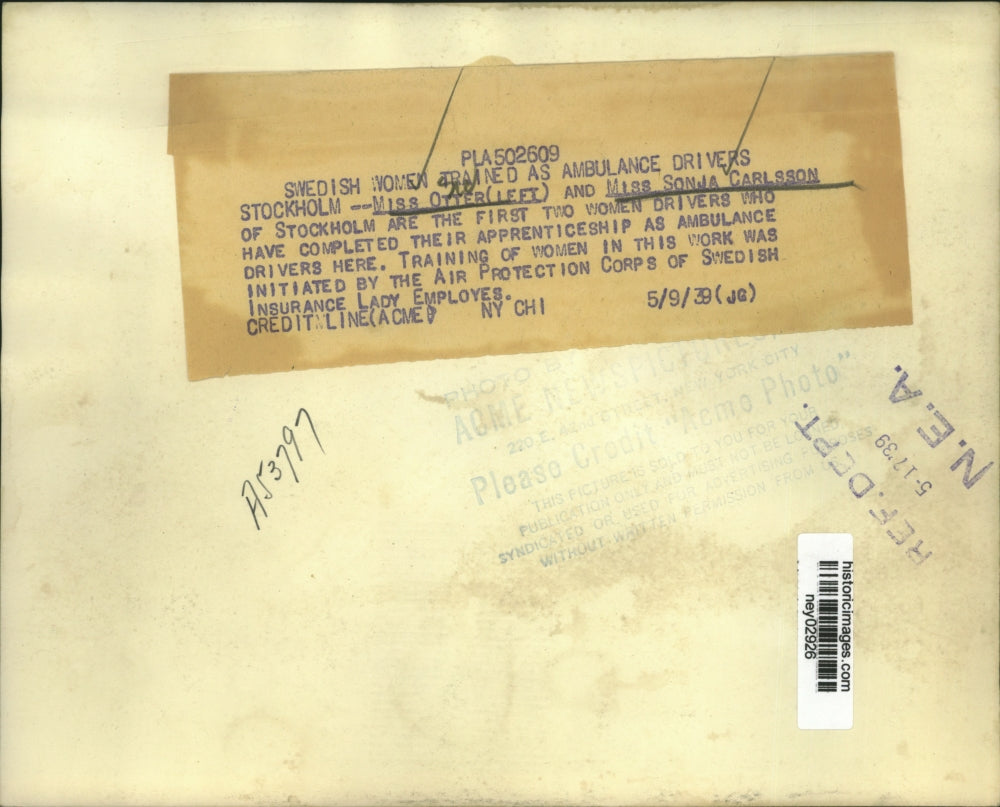 PLA502609
SWEDISH WOMEN TRAINED AS AMBULANCE DRIVERS
STOCKHOLM --MISS OTTER(LEFT) AND MISS SONJA CARLSSON
OF STOCKHOLM ARE THE FIRST TWO WOMEN DRIVERS WHO
HAVE COMPLETED THEIR APPRENTICESHIP AS AMBULANCE
DRIVERS HERE. TRAINING OF WOMEN IN THIS WORK WAS
INITIATED BY THE AIR PROTECTION CORPS OF SWEDISH
INSURANCE LADY EMPLOYES.
CREDIT LINE(ACME) NY CHI 5/9/39(JG)
A53797
PHOTO
ACME NEWSPICTURES
220 E. 42nd STREET, NEW YORK CITY
Please Credit "Acme Photo"
THIS PICTURE IS SOLD TO YOU FOR YOUR
PUBLICATION ONLY AND MUST NOT BE LOANED,
SYNDICATED OR USED FOR ADVERTISING PURPOSES
WITHOUT WRITTEN PERMISSION FROM
REF. DEPT.
5-17'39
N.E.A.
historicimages.com
ney02926